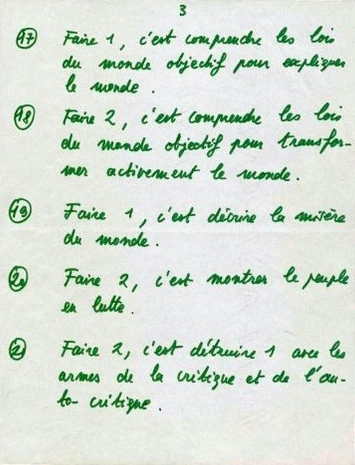 3
17 Faire 1, c'est comprendre les lois
du monde objectif pour expliquer
le monde.
18 Faire 2, c'est comprendre les lois
du monde objectif pour transfor-
mer activement le monde.
19 Faire 1, c'est décrire la misère
du monde.
20 Faire 2, c'est montrer le peuple
en lutte.
21 Faire 2, c'est détruire 1 avec les
armes de la critique et de l'au-
to-critique.